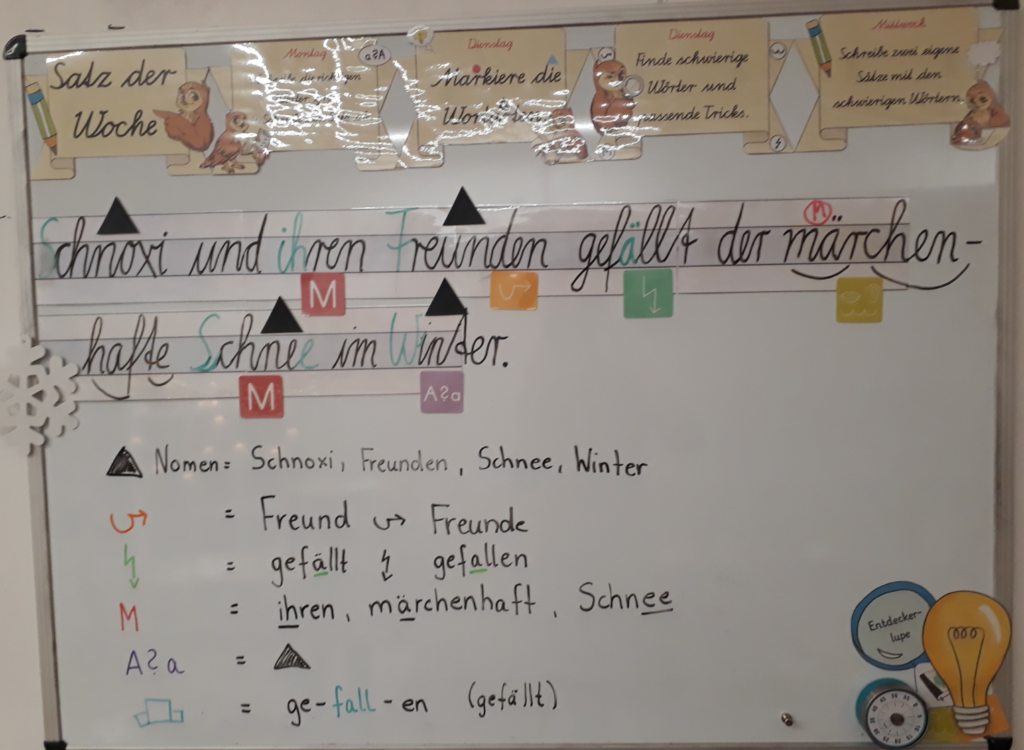 Satz der
Woche
Montag
a?A
Dienstag
Markiere die
Dienstag
Finde schwierige
Wörter und
passende Tricks.
Mittwoch
Schreibe zwei eigene
Sätze mit den
schwierigen Wörtern.
M
Schnoxi und ihren Freunden gefällt der märchen-
M
hafte Schnee im Winter.
M A?a
Nomen = Schnoxi, Freunden, Schnee, Winter
= Freund Freunde
= gefällt gefallen
M = ihren, märchenhaft, Schnee
A?a =
= ge-fall-en (gefällt)
Entdecker-
lupe